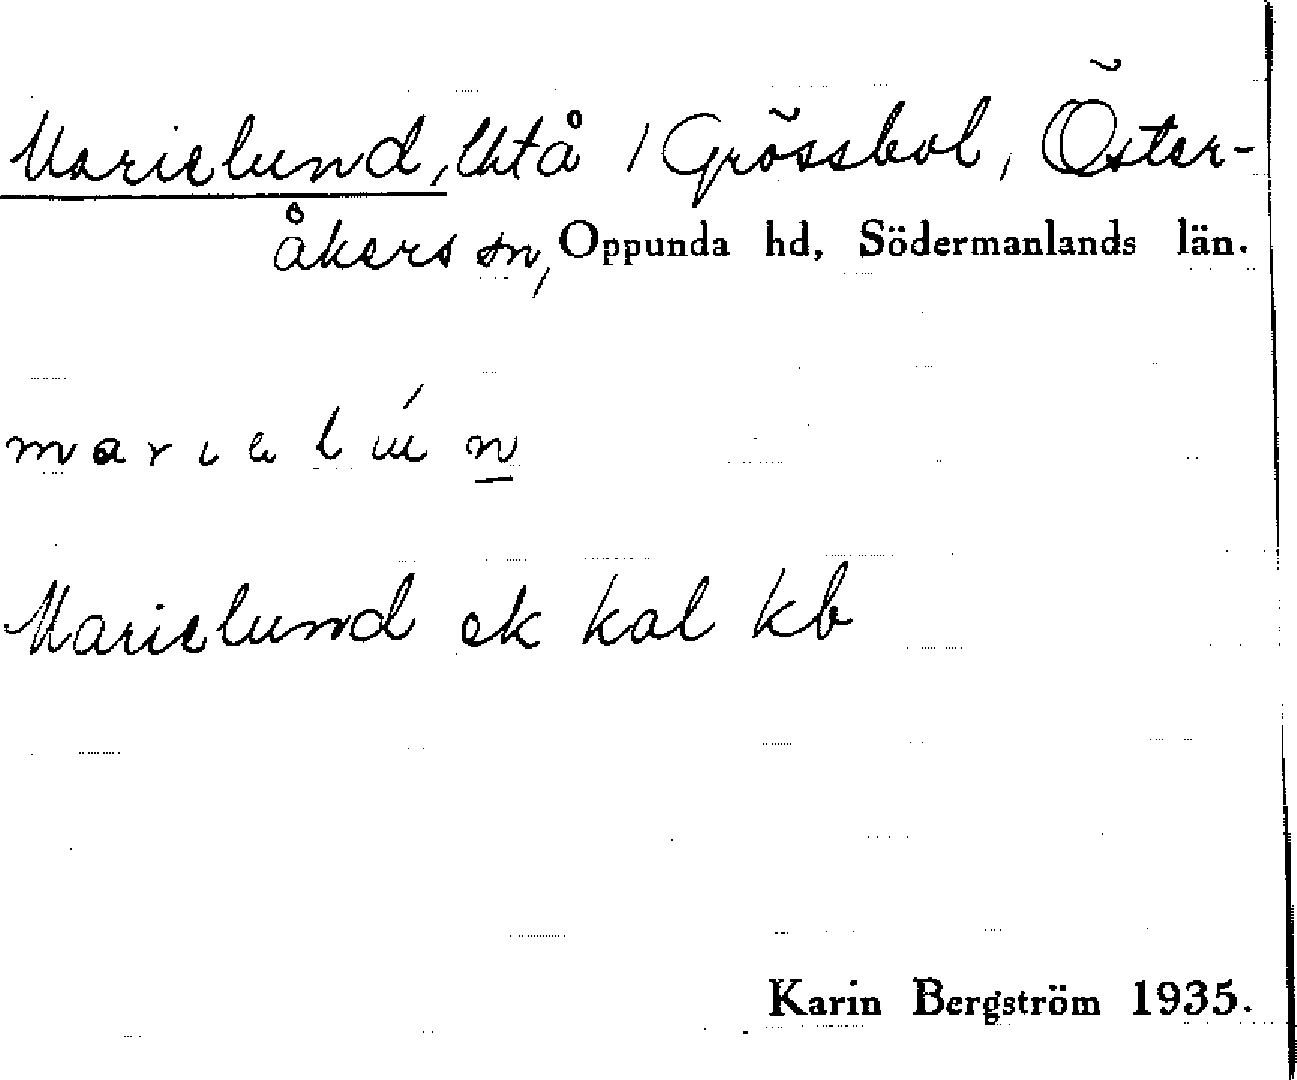 Marielund, lht å /Grössbol, Öster-
åkers sn, Oppunda hd, Södermanlands län.
marielún
Marielund ek kal kb
Karin Bergström 1935.